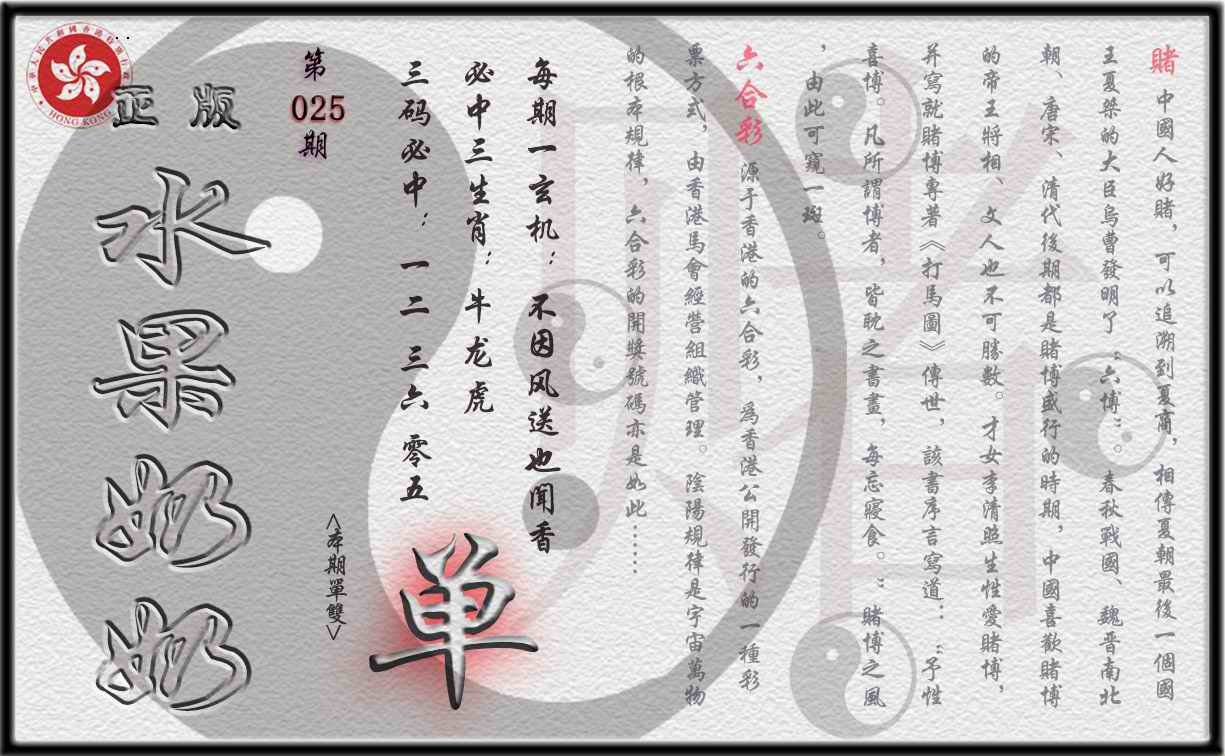 賭 中國人好賭，可以追溯到夏商，相傳夏朝最後一個國
王夏桀的大臣烏曹發明了“六博”。春秋戰國、魏晋南北
朝、唐宋、清代後期都是賭博盛行的時期，中國喜歡賭博
的帝王將相、文人也不可勝數。才女李清照生性愛賭博，
并寫就賭博專著《打馬圖》傳世，該書序言寫道：“予性
喜博。凡所謂博者，皆耽之書晝，每忘寢食。”賭博之風
，由此可窺一斑。
六合彩 源于香港的六合彩，爲香港公開發行的一種彩
票方式，由香港馬會經營組織管理。陰陽規律是宇宙萬物
的根本規律，六合彩的開獎號碼亦是如此……
每期一玄机：不因风送也闻香
必中三生肖：牛龙虎
三码必中：一二 三六 零五
<本期單雙>
单
第
025
期
正版
水果奶奶
HONG KONG